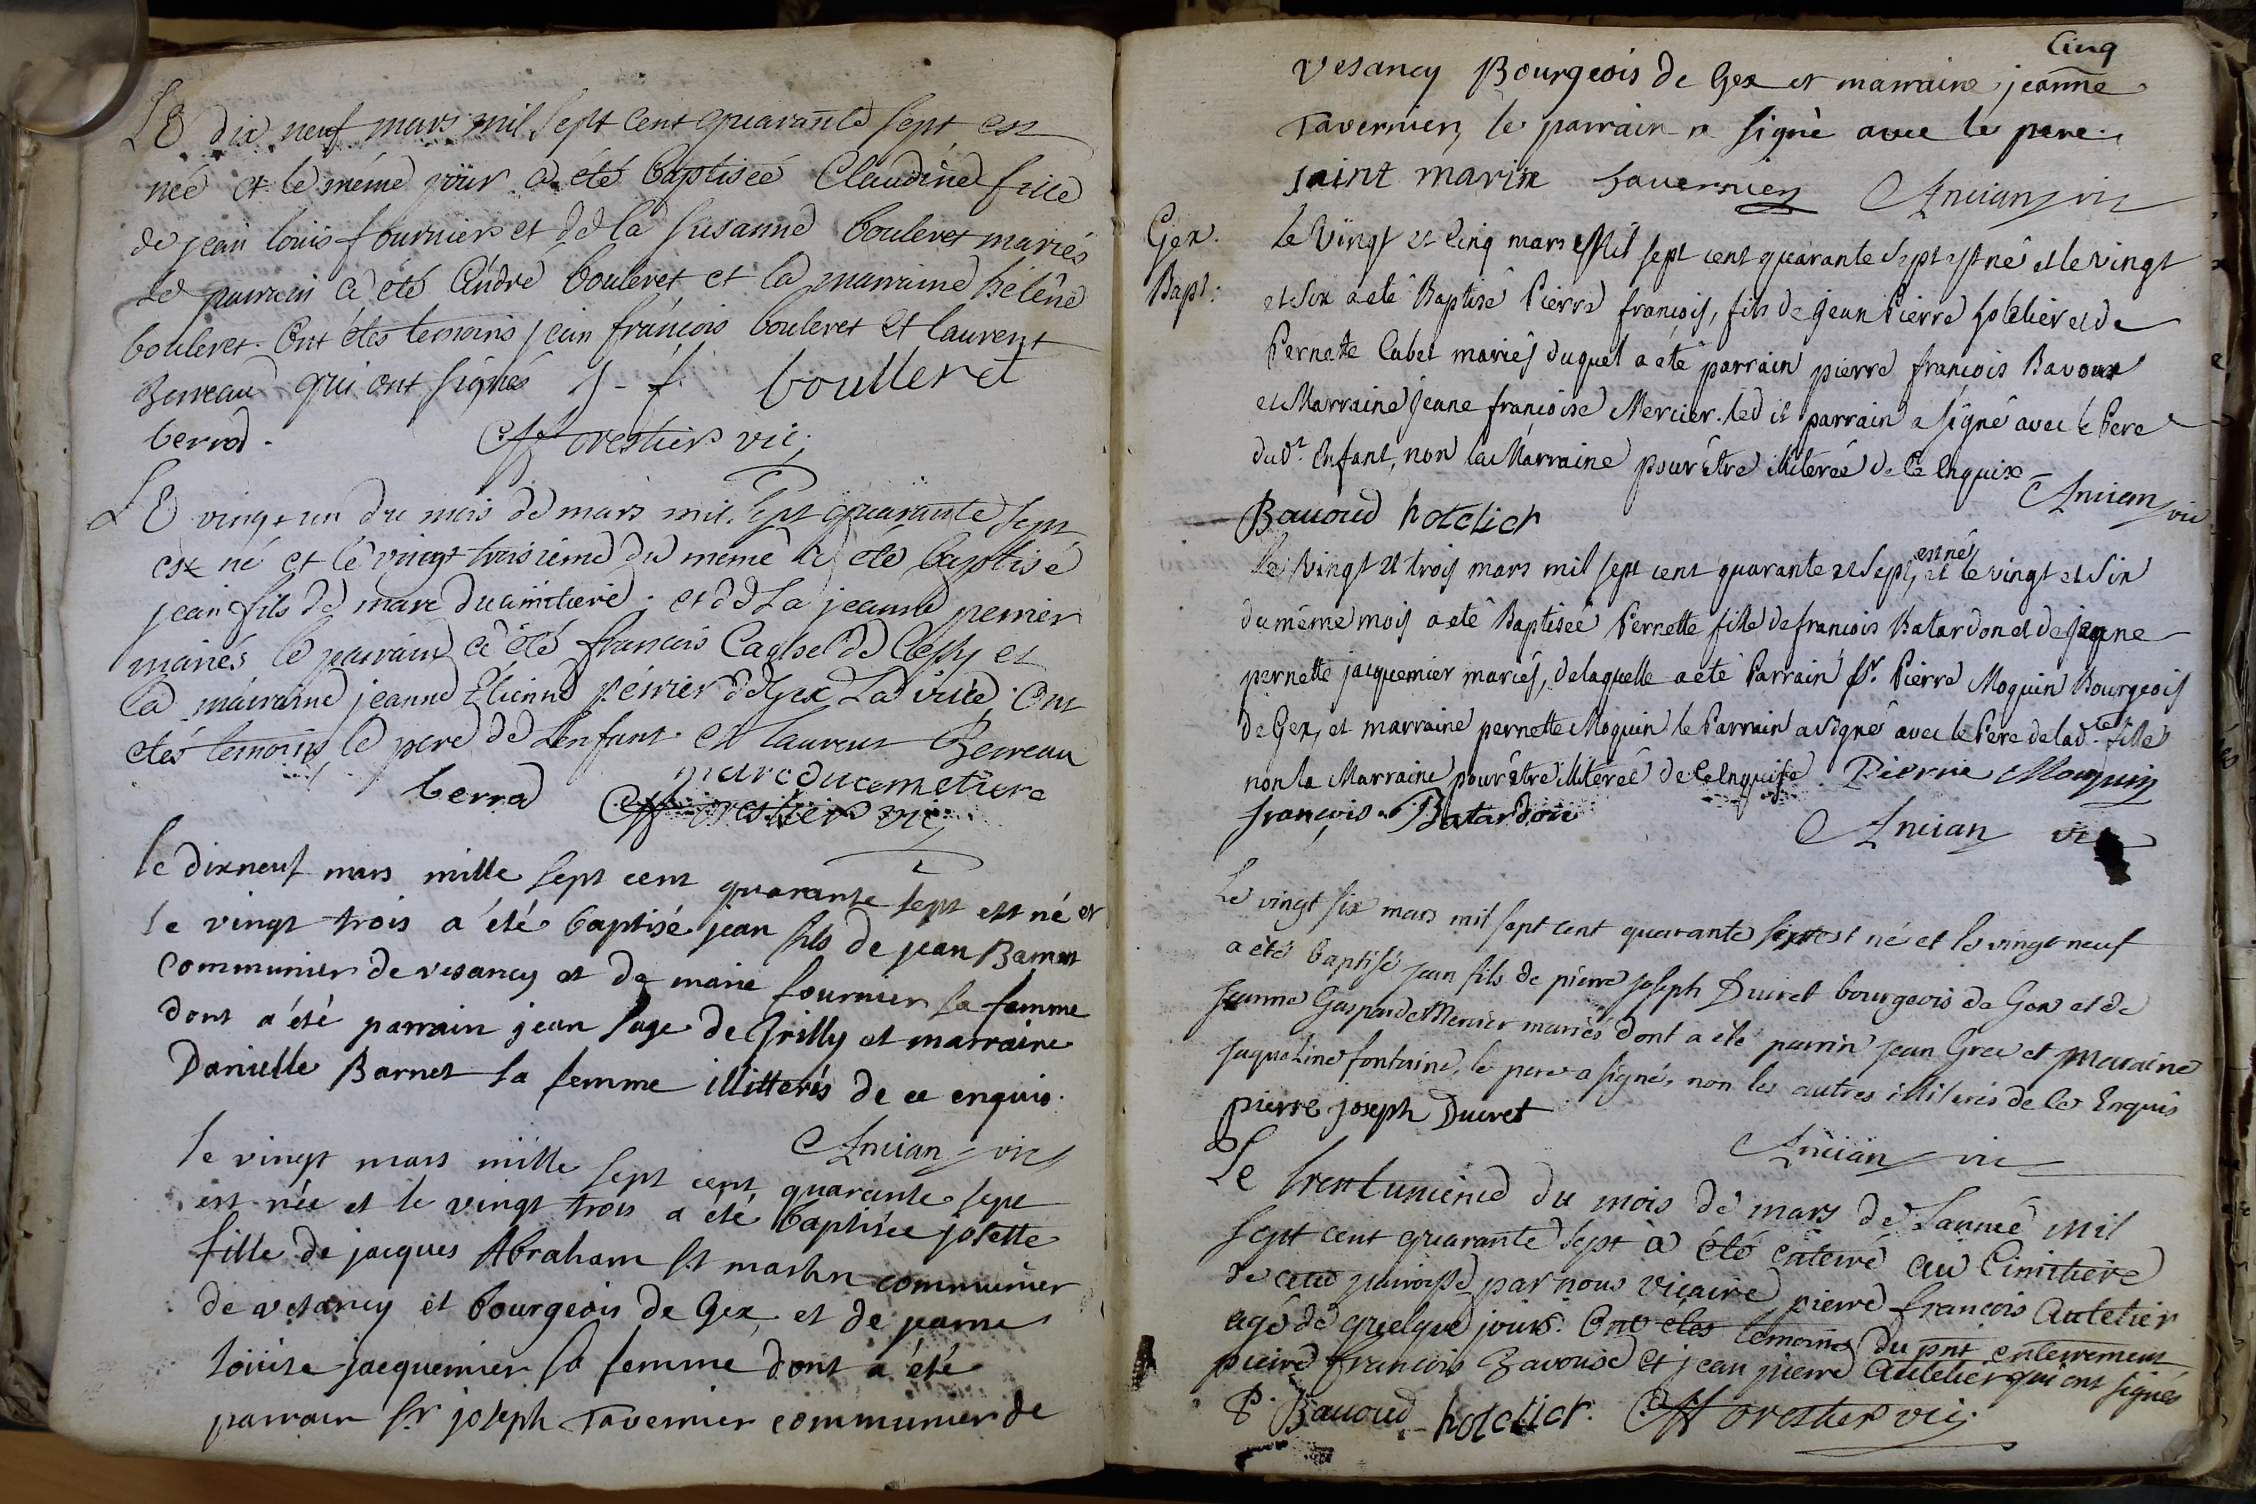 LE dix neuf mars mil sept cent quarante sept est
née et le même jour a été baptisée Claudine fille
de jean louis fournier et de la susanne bouleret mariés
le parrain a été andré bouleret et la marraine héléne
bouleret. Ont étés temoins jean françois bouleret et laurent
Berreau qui ont signés J - f boulleret
berrod. Forestier vic:
LE vingt un du mois de mars mil sept quarante sept
est né et le vingt troisième du même a été baptisé
jean fils de marc ducimitiere. et de La jeanne perrier
mariés le parrain a été francois de Cessy et
la marraine jeanne Etienne perrier de Gex La ville. Ont
étés temoins le pere de Lenfant et laurent Berreau
berrod marc ducemetiere
Forestier vic
le dixneuf mars mille sept cent quarante sept est né et
le vingt trois a été baptisé jean fils de jean Barnet
communier de vesancy et de marie fournier sa femme
dont a été parrain jean sage de Grilly et marraine
Danielle Barnet sa femme illitterés de ce enquis.
Ancian vic
le vingt mars mille sept cent quarante sept
est née et le vingt trois a été baptisée josette
fille de jacques Abraham st martin communier
de vesancy et bourgeois de Gex et de jeanne
louise jacquemier sa femme dont a été
parrain sr joseph Tavernier communier de
Cinq
vesancy Bourgeois de Gex et marraine jeanne
Tavernier, le parrain a signè avec le pere.
saint marin tavernier Ancian vic
Gex.
Bapt:
le Vingt et cinq mars Mil sept cent quarante sept est né et le vingt
et six a eté Baptisé Pierre françois, fils de Jean Pierre hôtelier et de
Pernette Cabet mariés duquel a eté parrain pierre françois Bavoux
et Marraine Jeane francoise Mercier. led it parrain a signé avec le Pere
dud.t Enfant, non la Marraine pour être illiterée de Ce Enquise
Ancian vic
Bauoud hotelier
Le Vingt et trois mars mil sept cent quarante et Sept, est né et le vingt et Six
du même mois a eté Baptisée Pernette fille de francois Batardon et de Jeane
pernette jacquemier mariés, delaquelle a eté Parrain Sr. Pierre Moquin Bourgeois
de Gex, et marraine pernette Moquin le Parrain a signé avec le Pere de lad.te fille
non la Marraine pour être illiterée de Ce Enquise. Pierre Moquin
françois Batardon
Ancian vic
Le vingt six mars mil sept cent quarante sept est né et le vingt neuf
a été baptisé jean fils de pierre joseph Ducret bourgeois de Gex et de
Jeanne Gasparde Mercier mariés dont a été parrin jean Grec et maraine
Jaqueline fontaine, le pere a signé, non les autres illiterés de ce Enquis
pierre joseph Ducret
Ancian vic
Le trentunieme du mois de mars de Lannée mil
sept cent quarante sept à été enterré au Cimitiere
de cette parroisse par nous vicaire pierre françois autelier
agé de quelque jours. Ont étés temoins du pnt enterrement
pierre francois Bavouse et jean pierre autelier qui ont signés
P. Bauoud hotelier. Forestier vic.